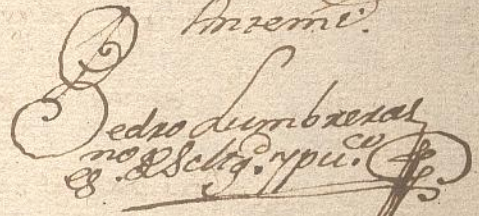 Antemi.
Pedro Lumbreras
no
es. de Su Mg.d y pu.co